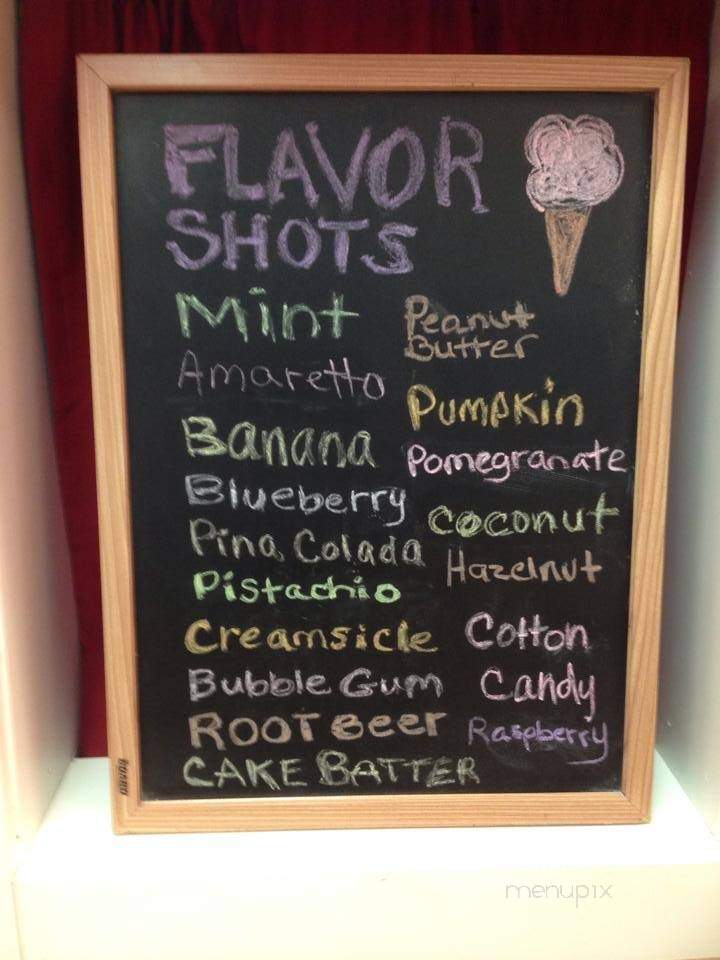 FLAVOR
SHOTS
Mint
Amaretto
Banana
Blueberry
Pina Colada
Pistachio
Creamsicle
Bubble Gum
ROOT Beer
CAKE BATTER
Peanut
Butter
Pumpkin
Pomegranate
Coconut
Hazelnut
Cotton
Candy
Raspberry
menupix